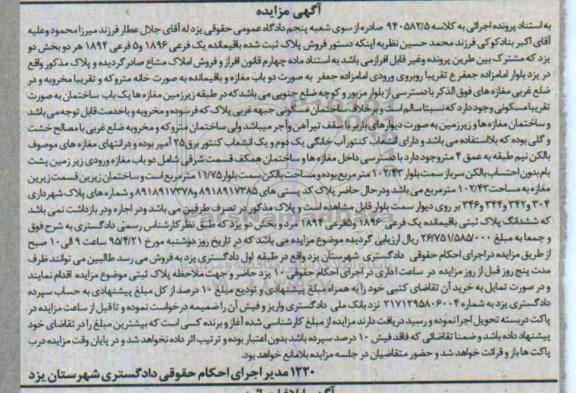 آگهی مزایده
به استناد پرونده اجرائی به کلاسه ۹۴۰۵۸۲/۵ صادره از سوی شعبه پنجم دادگاه عمومی حقوقی یزد له آقای جلال عطار فرزند میرزا محمود و علیه
آقای اکبر بنادکوکی فرزند محمد حسین نظر به اینکه دستور فروش پلاک ثبت شده باقیمانده یک فرعی ۱۸۹۶ و ۵ فرعی ۱۸۹۴ هر دو بخش دو
یزد که مشترک بین طرین پرونده و غیر قابل افراز می باشد به استناد ماده چهارم قانون افراز و فروش املاک مشاع صادر گردیده و پلاک مذکور واقع
در یزد بلوار امامزاده جعفر ع تقریبا روبروی ورودی امامزاده جعفر به صورت دو باب مغازه و باقیمانده به صورت خانه متروکه و تقریبا مخروبه و در
ضلع غربی مغازه های فوق الذکر با دسترسی از بلوار مزبور و کوچه ضلع جنوبی می باشد که در طبقه زیرزمین مغازه ها یک باب ساختمان به صورت
تقریبا مسکونی وجود دارد که نسبتا سالم است و بر خلاف ساختمان مسکونی جبهه غربی پلاک که فرسوده و مخروبه و با خدمت قابل توجه می باشد
و ساختمان مغازه ها و زیرزمین به صورت دیوارهای باربر با سقف تیرآهن و آجر میباشد ولی ساختمان متروکه و مخروبه ضلع غربی با مصالح خشت
و گلی بوده که بلااستفاده می باشد و دارای انشعاب کنتور آب خانگی یک دوم و یک انشعاب کنتور برق ۲۵ آمپر بوده و در انتهای مغازه های موصوف
بالکن نیم طبقه به عمق ۴ متر وجود دارد با دسترسی داخل مغازه ها و ساختمان همکف قسمت شرقی شامل دو باب مغازه ورودی زیر زمین پشت
بام بدون احتساب بالکن سرباز سمت بلوار ۱۰۲/۴۳ متر مربع بوده و مساحت بالکن سمت بلوار ۱۱/۷۵ مترمربع است و ساختمان زیرین قسمت زیرین
مغازه به مساحت ۱۰۲/۴۳ مترمربع می باشد و در حال حاضر پلاک کد پستی های ۸۹۱۸۹۱۷۳۸۵ و ۸۹۱۸۹۱۷۳۷۸ و شماره های پلاک شهرداری
۳۰۴ و ۳۴۲ و ۳۴۴ و ۳۴۶ بر روی دیوار سمت بلوار قابل مشاهده است و پلاک مذکور در تصرف طرفین می باشد و در اجاره و در بازداشت نمی باشد
که ششدانگ پلاک ثبتی باقیمانده یک فرعی ۱۸۹۶ و ۵ فرعی ۱۸۹۴ مرد و بخش دو یزد که طبق نظر کارشناس رسمی دادگستری به شرح فوق
و جمعا به مبلغ ۲۶۷۵۱/۵۸۵/۰۰۰ ریال ارزیابی گردیده موضوع مزایده می باشد که در تاریخ روز دوشنبه مورخ ۹۵/۴/۲۱ ساعت ۹ الی ۱۰ صبح
از طریق مزایده در اجرای احکام حقوقی دادگستری شهرستان یزد واقع در طبقه اول دادگستری یزد به فروش می رسد طالبین می توانند ظرف
مدت پنج روز قبل از روز مزایده در ساعت اداری در اجرای احکام حقوقی ۱۰ یزد حاضر و جهت ملاحظه پلاک ثبتی موضوع مزایده اقدام نمایند
و در صورت تمایل به خرید آن تقاضای کتبی خود را به همراه مبلغ پیشنهادی و تودیع مبلغ ۱۰ درصد از کل مبلغ پیشنهادی به حساب سپرده
دادگستری یزد به شماره ۲۱۷۱۲۹۵۸۰۶۰۰۴ نزد بانک ملی دادگستری واریز و فیش آن را ضمیمه درخواست نموده و تا قبل از ساعت مزایده در
پاکت دربسته تحویل اجرا نموده و رسید دریافت دارند مزایده از مبلغ کارشناسی شده آغاز و برنده کسی است که بیشترین مبلغ را در تقاضای خود
پیشنهاد داده باشد و ضمنا تقاضائی که فاقد فیش ۱۰ درصد سپرده باشد بدون اعتبار بوده و ترتیب اثر داده نخواهد شد و در پایان وقت مزایده درب
پاکت ها باز و قرائت خواهد شد و حضور متقاضیان در جلسه مزایده بلامانع خواهد بود.
۱۲۲۰ مدیر اجرای احکام حقوقی دادگستری شهرستان یزد